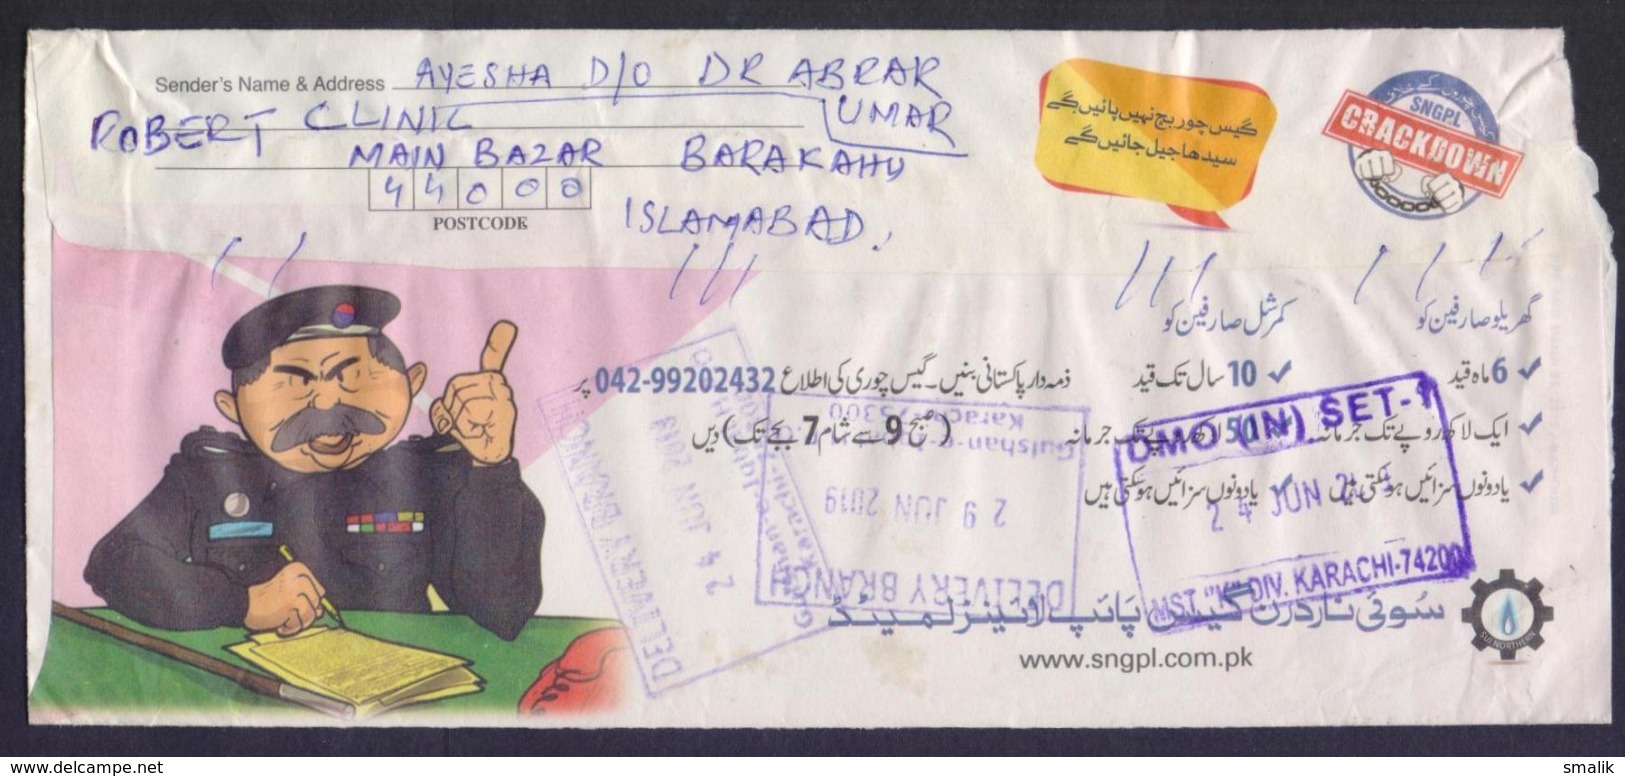 Sender's Name & Address AYESHA D/O DR ABRAR
ROBERT CLINIC UMAR
MAIN BAZAR BARAKAHU
44000
POSTCODE
ISLAMABAD.
گیس چور بچ نہیں پائیں گے
سیدھا جیل جائیں گے
SNGPL
CRACKDOWN
گھریلو صارفین کو
6 ماہ قید
ایک لاکھ روپے تک جرمانہ
یا دونوں سزائیں ہو سکتی ہیں
کمرشل صارفین کو
10 سال تک قید
50 لاکھ روپے تک جرمانہ
یا دونوں سزائیں ہو سکتی ہیں
ذمہ دار پاکستانی بنیں۔ گیس چوری کی اطلاع 042-99202432 پر
(صبح 9 سے شام 7 بجے تک) دیں
DMO (IN) SET-1
24 JUN
DIV. KARACHI-74200
DELIVERY BRANCH
29 JUN 2019
Karachi-75300
DELIVERY BRANCH
24 JUN 2019
سوئی ناردرن گیس پائپ لائینز لمیٹڈ
SUI NORTHERN
www.sngpl.com.pk
www.delcampe.net
smalik